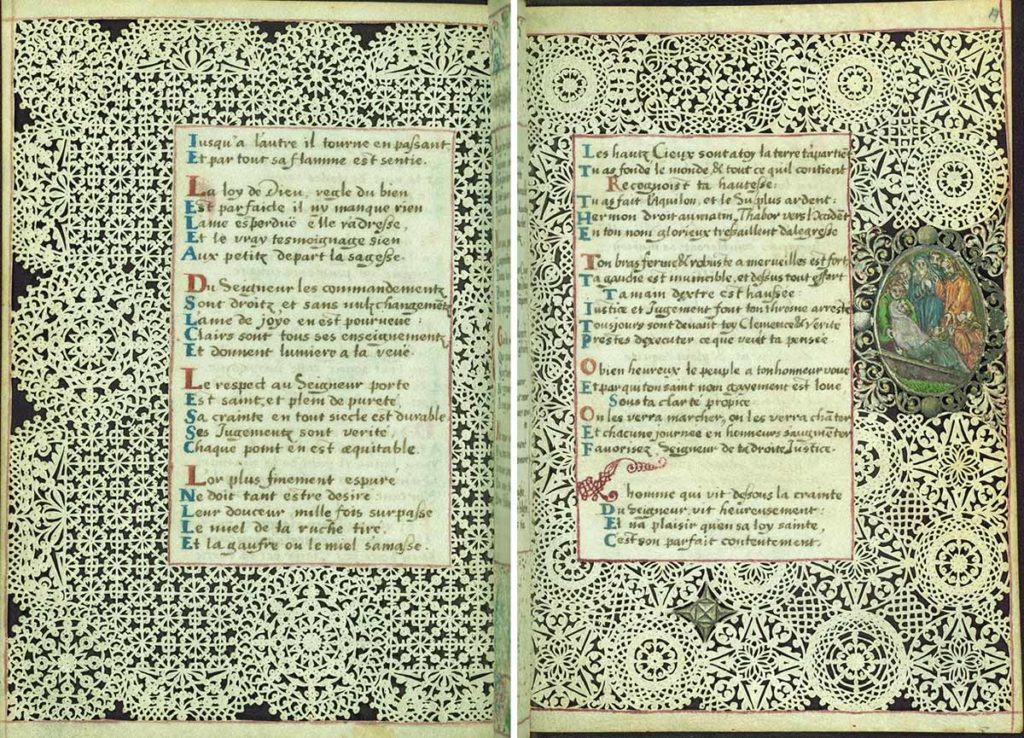 Iusqu'a l'autre il tourne en passant
Et par tout sa flamme est sentie.
La loy de Dieu, regle du bien
Est parfaicte il ny manque rien
Lame esperdue elle radresse,
Et le vray tesmoignage sien
Aux petitz depart la sagesse.
Du Seigneur les commandementz
Sont droitz et sans nulz changementz
Lame de joye en est pourveue:
Clairs sont tous ses enseignementz
Et donnent lumiere a la veue.
Le respect au Seigneur porte
Est saint, et plein de purete,
Sa crainte en tout siecle est durable
Ses Jugementz sont verite,
Chaque point en est æquitable.
Lor plus finement espure
Ne doit tant estre desire
Leur douceur mille fois surpasse
Le miel de la ruche tire,
Et la gaufre ou le miel samasse.
Les hautz Cieux sont a toy la terre tapartiet
Tu as fonde le monde & tout ce quil contient
Recognoist ta hautesse:
Tu as fait l'Aquilon, et le Su plus ardent:
Hermon droit au matin, Thabor vers
En ton nom glorieux tressaillent dalegresse
Ton bras ferme & robuste a merveilles est fort
Ta gauche est invincible, et dessus tout effort
Ta main dextre est haussee:
Iustice et Jugement font ton throsne arreste
Tousjours sont devant toy Clemence & Verite
Prestes dexecuter ce que veult ta pensee
O bien heureux le peuple a ton honneur voue
Et par qui ton saint nom gayement est loue
Sous ta clarte propice
On les verra marcher, on les verra chanter
Et chacune journee en honneur saugmenter
Favorisez Seigneur de ta droite Justice.
L homme qui vit dessous la crainte
Du Seigneur, vit heureusement:
Et na plaisir quen sa loy sainte,
C'est son parfait contentement.